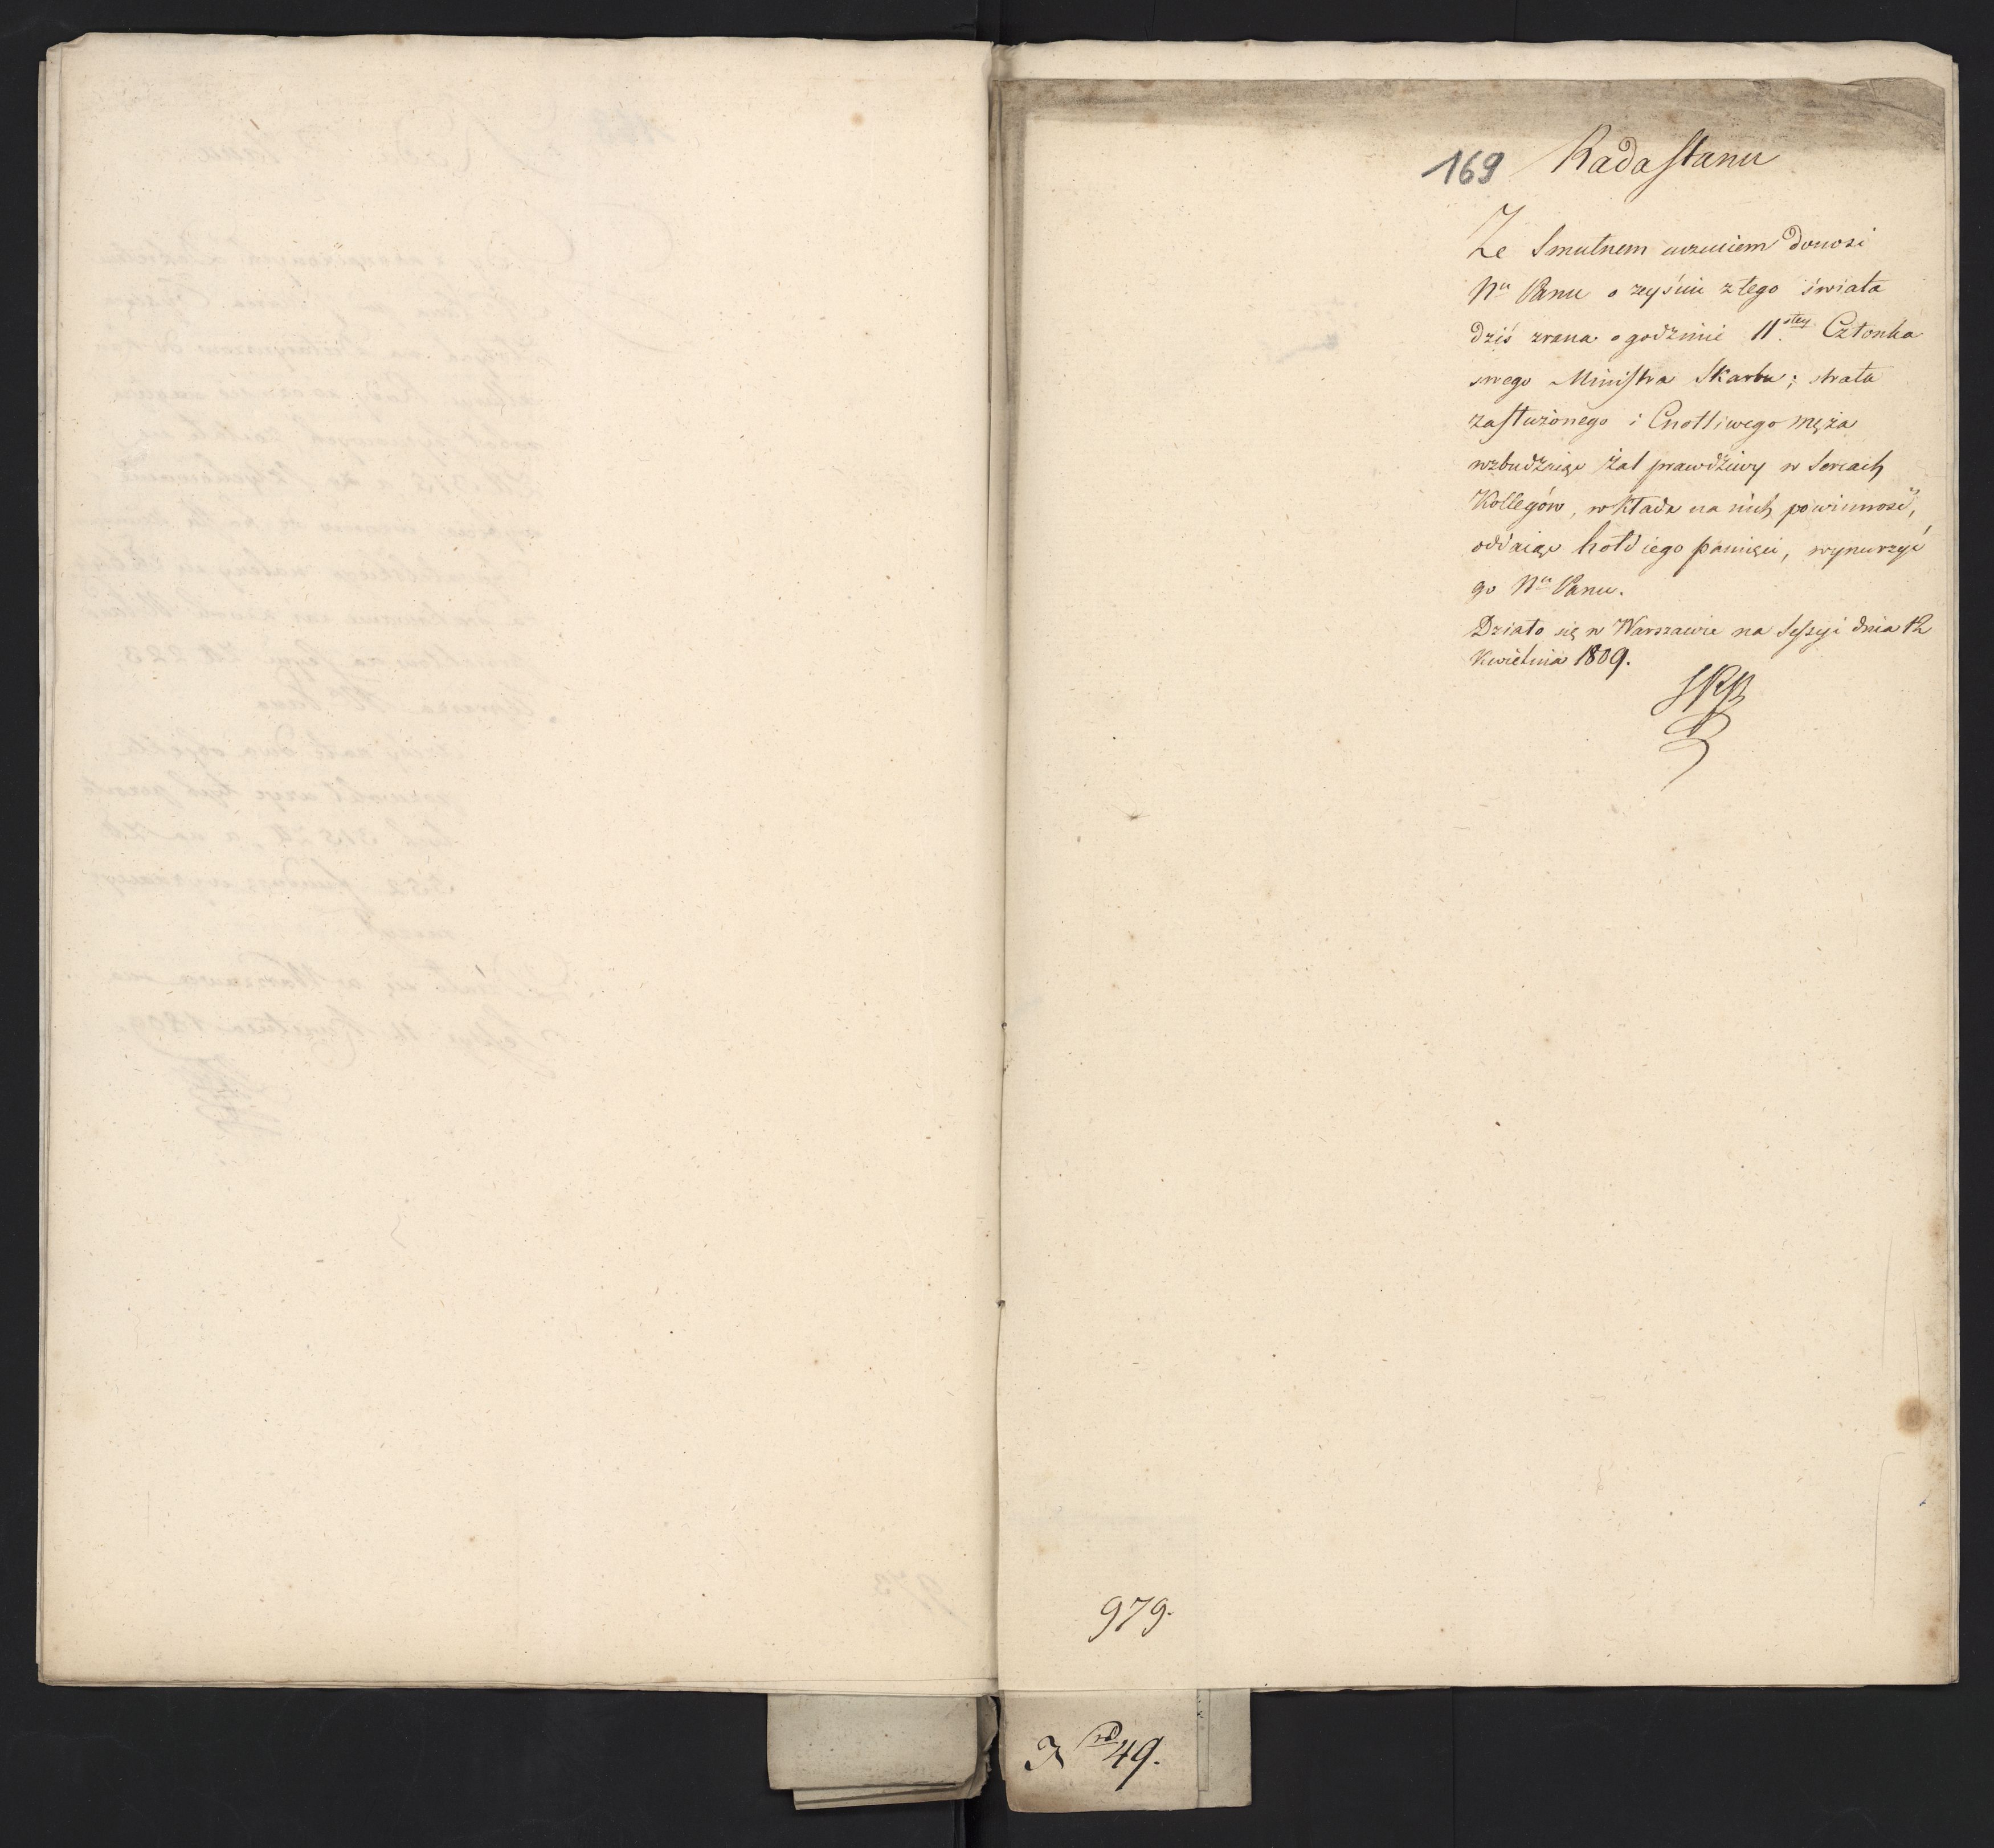 169 Rada Stanu
Ze Smutnem uczuciem donosi
Nu Panu o zeyściu z tego świata
dziś zrana o godzinie 11stey Członka
swego Ministra Skarbu; strata
zasłużonego i Cnotliwego męża
wzbudzaiąc żal prawdziwy w Sercach
Kollegów, wkłada na nich powinność,
oddaiąc hołd iego pamięci, wynurzyć
go Nu Panu.
Działo się w Warszawie na Sessyi dnia 12
Kwietnia 1809.
979.
49.